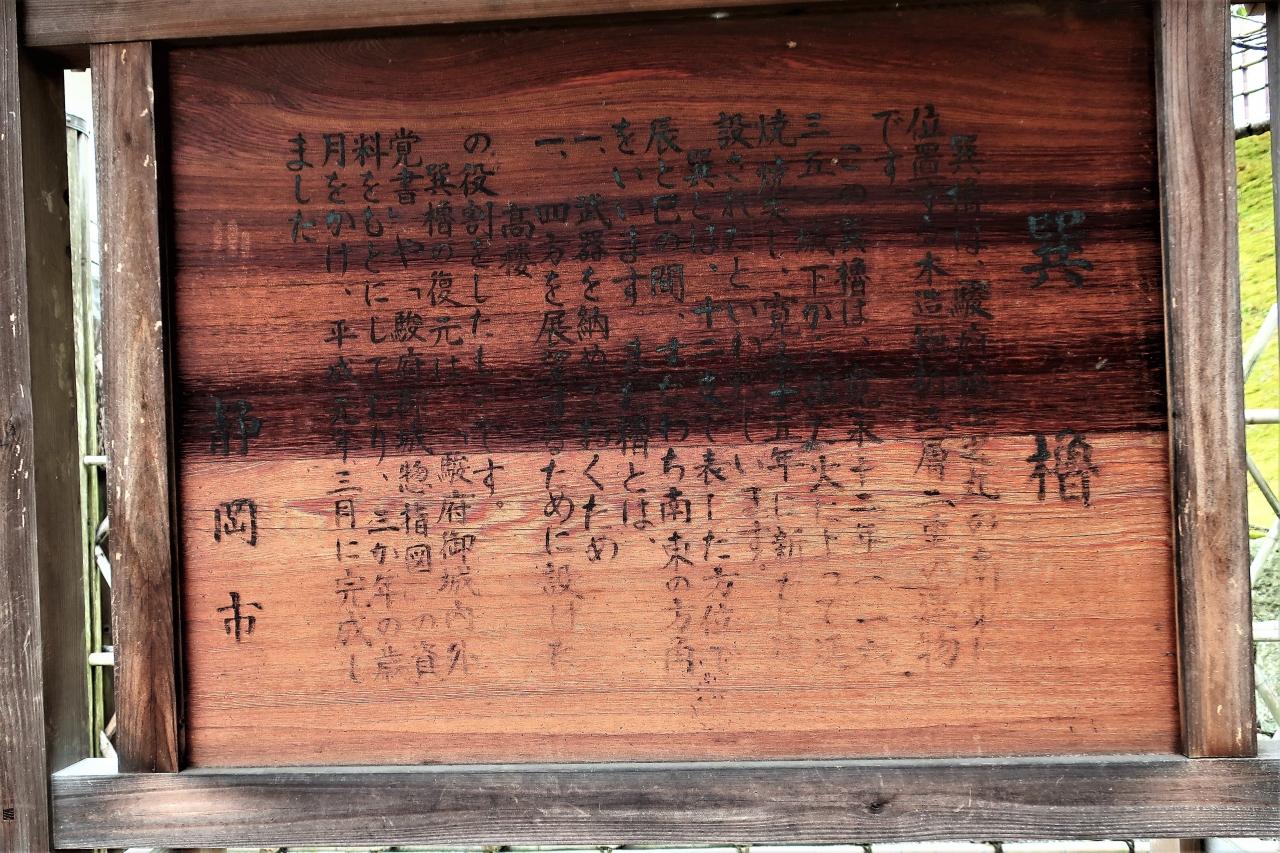 巽櫓
巽櫓は、駿府城二之丸の南東に
位置する木造 二層三重の建物
です
この巽櫓は、寛永十二年(一六
三五)城下から出た火によって
焼焼失し、寛永十五年に新たに
設されたといわれています。
巽とは、十二支で表した方位で
辰と巳の間、すなわち南東の方角
をいいます。また櫓とは、
一、武器を納めておくため
一、四方を展望するために設けた
高櫻
の役割をしたものです。
巽櫓の復元は、「駿府御城内外
覚書」や「駿府御城惣指図」の資
料をもとにしており、三か年の歳
月をかけ、平成元年三月に完成し
ました
静岡市